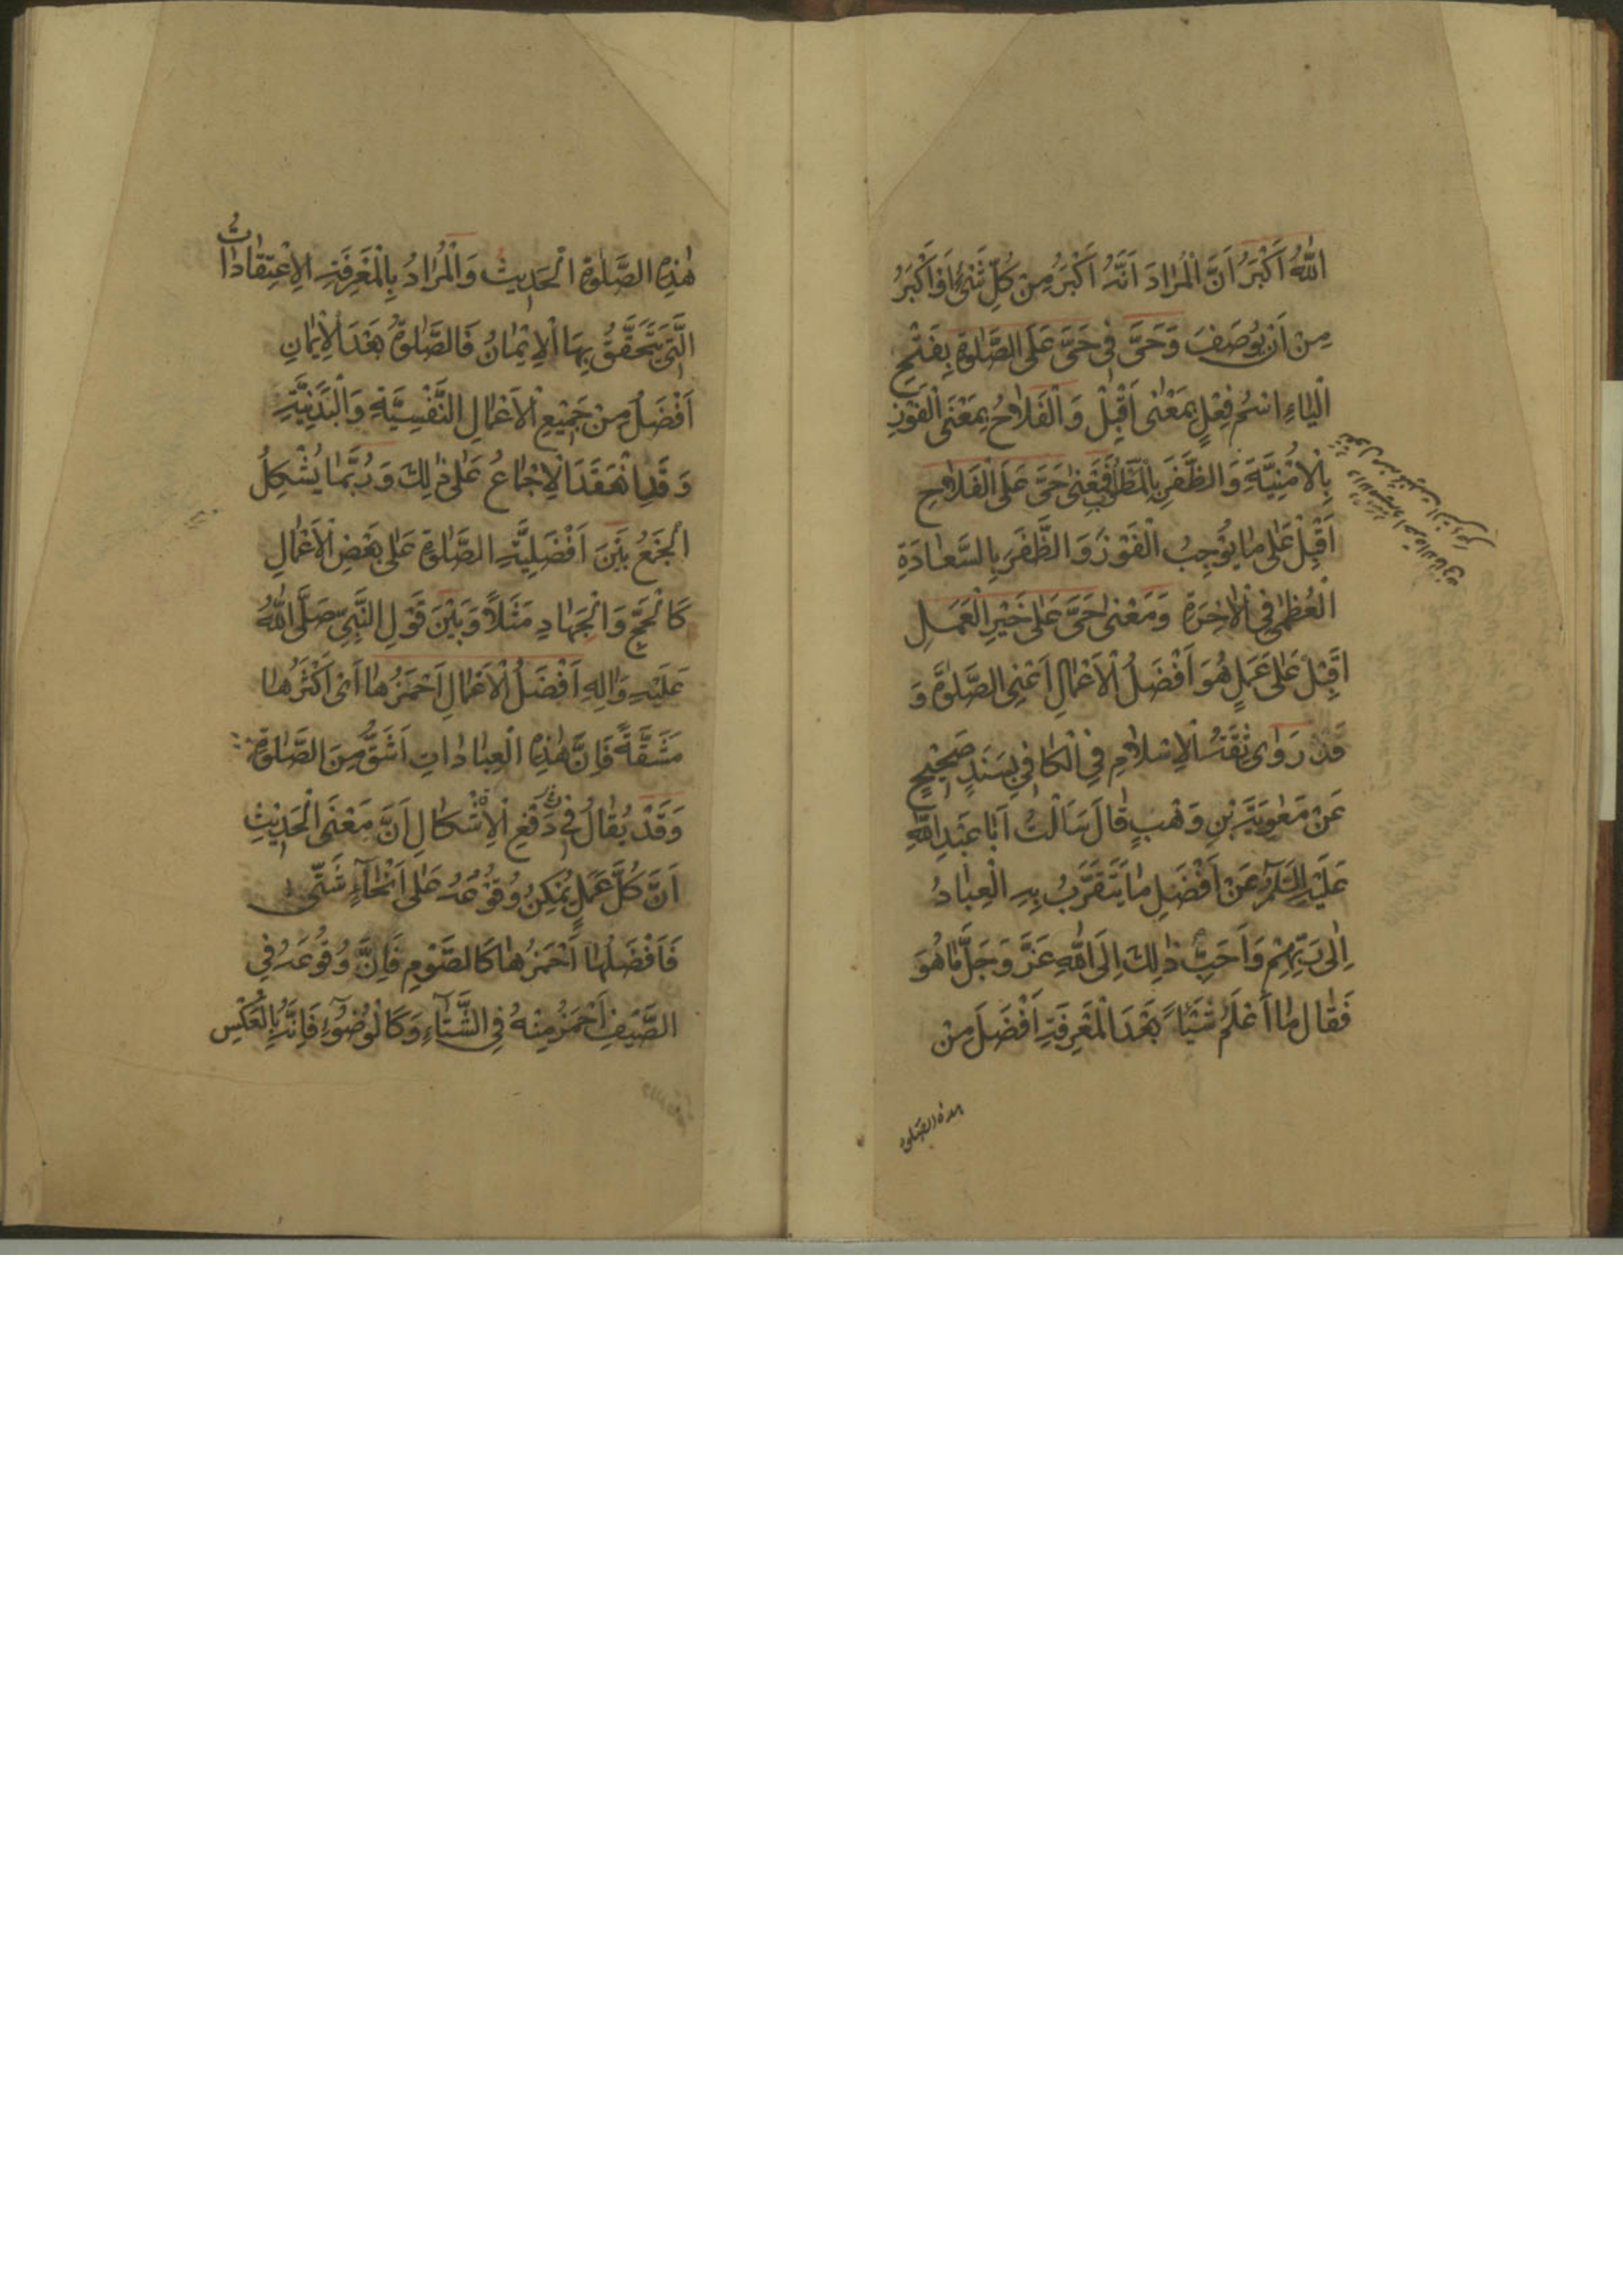 اَللّٰهُ اَكْبَرُ اَنَّ الْمُرٰادَ اَنَّهُ اَكْبَرُ مِنْ كُلِّ شَىْءٍ اَوْ اَكْبَرُ
مِنْ اَنْ يُوصَفَ وَحَىَّ فِى حَىَّ عَلَى الصَّلٰوةِ بِفَتْحِ
الْيٰاءِ اسْمُ فِعْلٍ بِمَعْنٰى اَقْبِلْ وَالْفَلٰاحُ بِمَعْنَى الْفَوْزِ
بِالْاُمْنِيَّةِ وَالظَّفَرِ بِالْمَطْلُوبِ فَمَعْنٰى حَىَّ عَلَى الْفَلٰاحِ
اَقْبِلْ عَلٰى مٰا يُوْجِبُ الْفَوْزَ وَالظَّفَرَ بِالسَّعٰادَةِ
الْعُظْمٰى فِى الْاٰخِرَةِ وَمَعْنٰى حَىَّ عَلٰى خَيْرِ الْعَمَلِ
اَقْبِلْ عَلٰى عَمَلٍ هُوَ اَفْضَلُ الْاَعْمٰالِ اَعْنِى الصَّلٰوةَ وَ
قَدْ رَوٰى ثِقَةُ الْاِسْلٰامِ فِى الْكٰافِى بِسَنَدٍ صَحِيْحٍ
عَنْ مُعٰوِيَةَ بْنِ وَهْبٍ قٰالَ سَاَلْتُ اَبٰا عَبْدِ اللّٰهِ
عَلَيْهِ السَّلَامُ عَنْ اَفْضَلِ مٰا يَتَقَرَّبُ بِهِ الْعِبٰادُ
اِلٰى رَبِّهِمْ وَاَحَبَّ ذٰلِكَ اِلَى اللّٰهِ عَزَّ وَجَلَّ مٰا هُوَ
فَقٰالَ مٰا اَعْلَمُ شَيْئاً بَعْدَ الْمَعْرِفَةِ اَفْضَلَ مِنْ
هذه الصلوة
هٰذِهِ الصَّلٰوةِ الْحَدِيثَ وَالْمُرٰادُ بِالْمَعْرِفَةِ الْاِعْتِقٰادٰاتُ
الَّتِى يَتَحَقَّقُ بِهَا الْاِيْمٰانُ فَالصَّلٰوةُ بَعْدَ الْاِيْمٰانِ
اَفْضَلُ مِنْ جَمِيْعِ الْاَعْمٰالِ النَّفْسِيَّةِ وَالْبَدَنِيَّةِ
وَقَدِ انْعَقَدَ الْاِجْمٰاعُ عَلٰى ذٰلِكَ وَرُبَّمٰا يُشْكِلُ
الْجَمْعُ بَيْنَ اَفْضَلِيَّةِ الصَّلٰوةِ عَلٰى بَعْضِ الْاَعْمٰالِ
كَالْحَجِّ وَالْجِهٰادِ مَثَلاً وَبَيْنَ قَوْلِ النَّبِىِّ صَلَّى اللّٰهُ
عَلَيْهِ وَاٰلِهِ اَفْضَلُ الْاَعْمٰالِ اَحْمَزُهٰا اَىْ اَكْثَرُهٰا
مَشَقَّةً فَاِنَّ هٰذِهِ الْعِبٰادٰاتِ اَشَقُّ مِنَ الصَّلٰوةِ
وَقَدْ يُقٰالُ فِى دَفْعِ الْاِشْكٰالِ اَنَّ مَعْنَى الْحَدِيْثِ
اَنَّ كُلَّ عَمَلٍ يُمْكِنُ وُقُوْعُهُ عَلٰى اَنْحٰآءٍ شَتّٰى
فَاَفْضَلُهٰا اَحْمَزُهٰا كَالصَّوْمِ فَاِنَّ وُقُوْعَهُ فِى
الصَّيْفِ اَحْمَزُ مِنْهُ فِى الشِّتٰآءِ وَكَالْوُضُوْءِ فَاِنَّهُ بِالْعَكْسِ